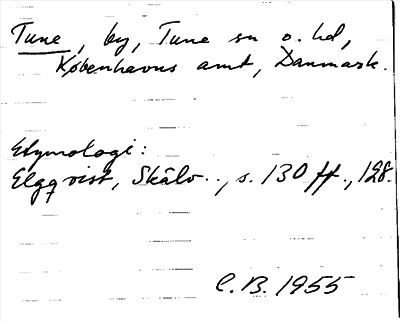 Tune, by, Tune sn o. hd,
Københavns amt, Danmark.
Etymologi:
Elgqvist, Skälv.., s. 130 ff., 128.
C.B. 1955